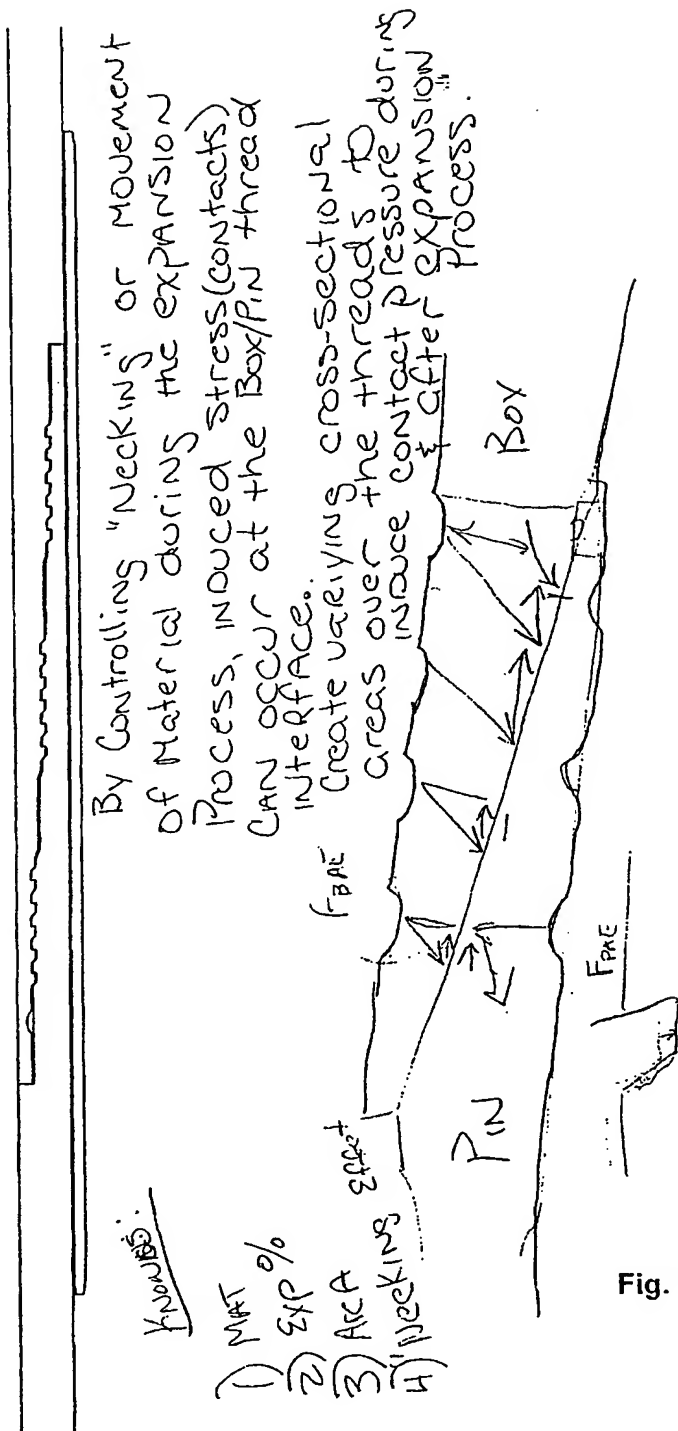 By Controlling "Necking" or Movement
of Material during the expansion
Process, induced stress (contacts)
can occur at the Box/Pin thread
interface.
Create variying cross-sectional
areas over the threads to
induce contact pressure during
& after expansion
Process.
FBAE
Box
Pin
FPAE
Knowns:
1) MAT
2) Exp %
3) Area
4) "Necking Effect
Fig.